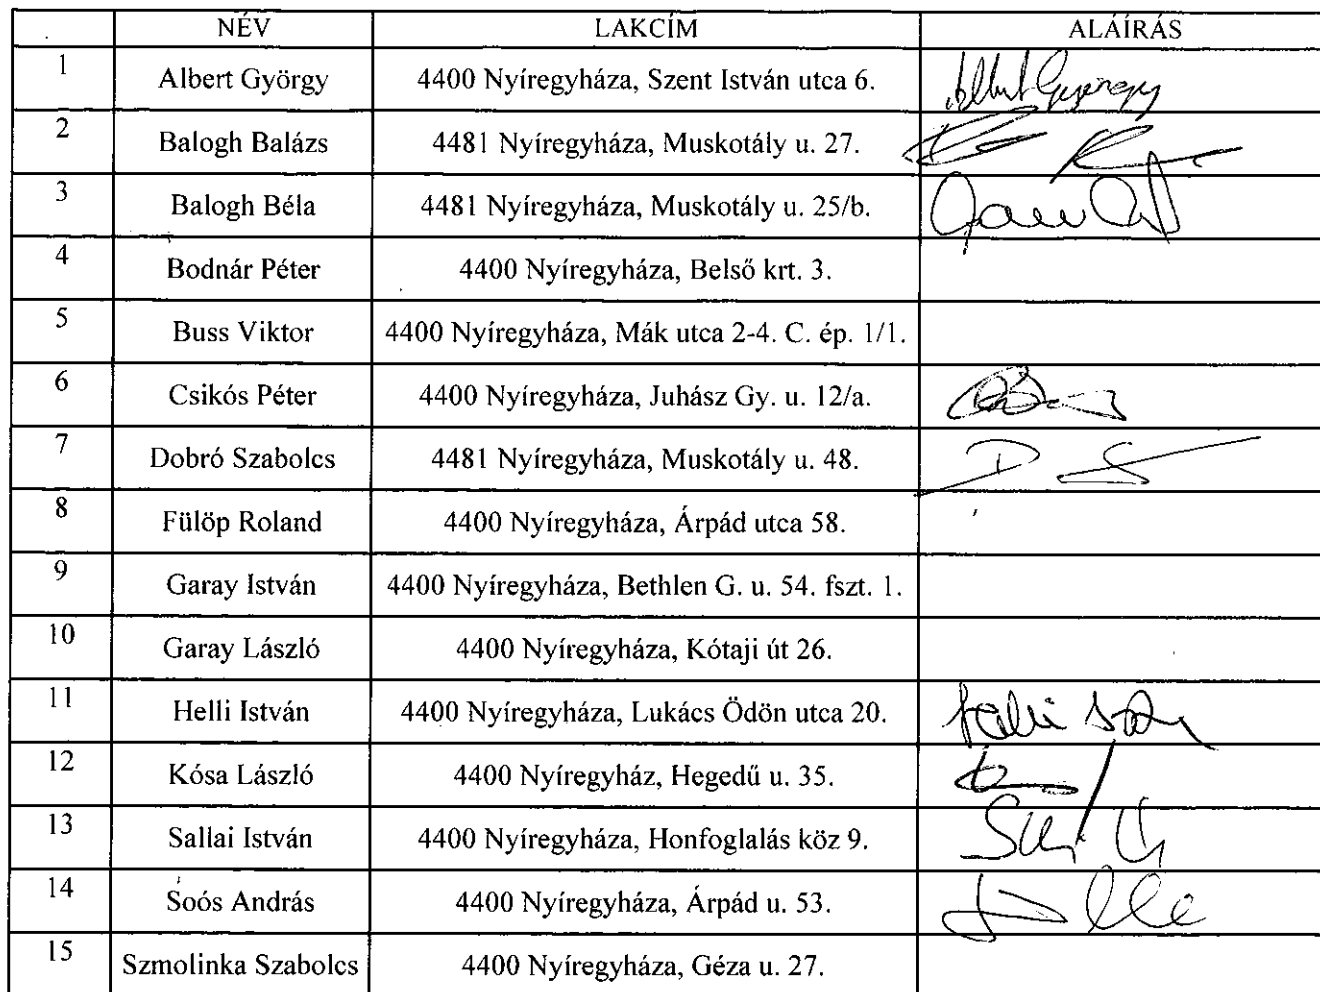 NÉV LAKCÍM ALÁÍRÁS
1 Albert György 4400 Nyíregyháza, Szent István utca 6. Albert György
2 Balogh Balázs 4481 Nyíregyháza, Muskotály u. 27.
3 Balogh Béla 4481 Nyíregyháza, Muskotály u. 25/b.
4 Bodnár Péter 4400 Nyíregyháza, Belső krt. 3.
5 Buss Viktor 4400 Nyíregyháza, Mák utca 2-4. C. ép. 1/1.
6 Csikós Péter 4400 Nyíregyháza, Juhász Gy. u. 12/a.
7 Dobró Szabolcs 4481 Nyíregyháza, Muskotály u. 48. D S
8 Fülöp Roland 4400 Nyíregyháza, Árpád utca 58.
9 Garay István 4400 Nyíregyháza, Bethlen G. u. 54. fszt. 1.
10 Garay László 4400 Nyíregyháza, Kótaji út 26.
11 Helli István 4400 Nyíregyháza, Lukács Ödön utca 20.
12 Kósa László 4400 Nyíregyház, Hegedű u. 35.
13 Sallai István 4400 Nyíregyháza, Honfoglalás köz 9.
14 Soós András 4400 Nyíregyháza, Árpád u. 53.
15 Szmolinka Szabolcs 4400 Nyíregyháza, Géza u. 27.